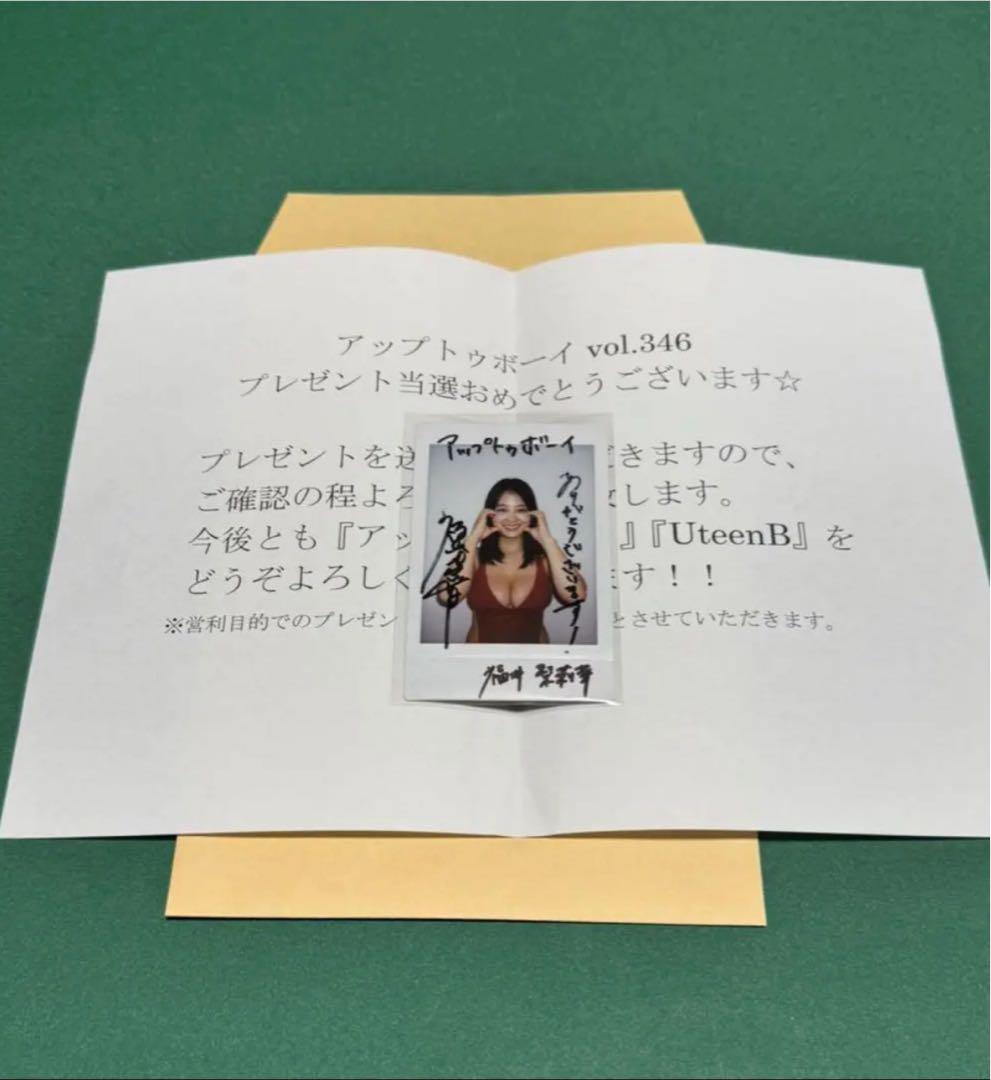 アップトゥボーイ vol.346
プレゼント当選おめでとうございます☆
プレゼントを送 だきますので、
ご確認の程よろ 致します。
今後とも『アッ 』『UteenB』を
どうぞよろしく ます！！
※営利目的でのプレゼン とさせていただきます。
アップトゥボーイ
ありがとうございます!
福井 梨莉華